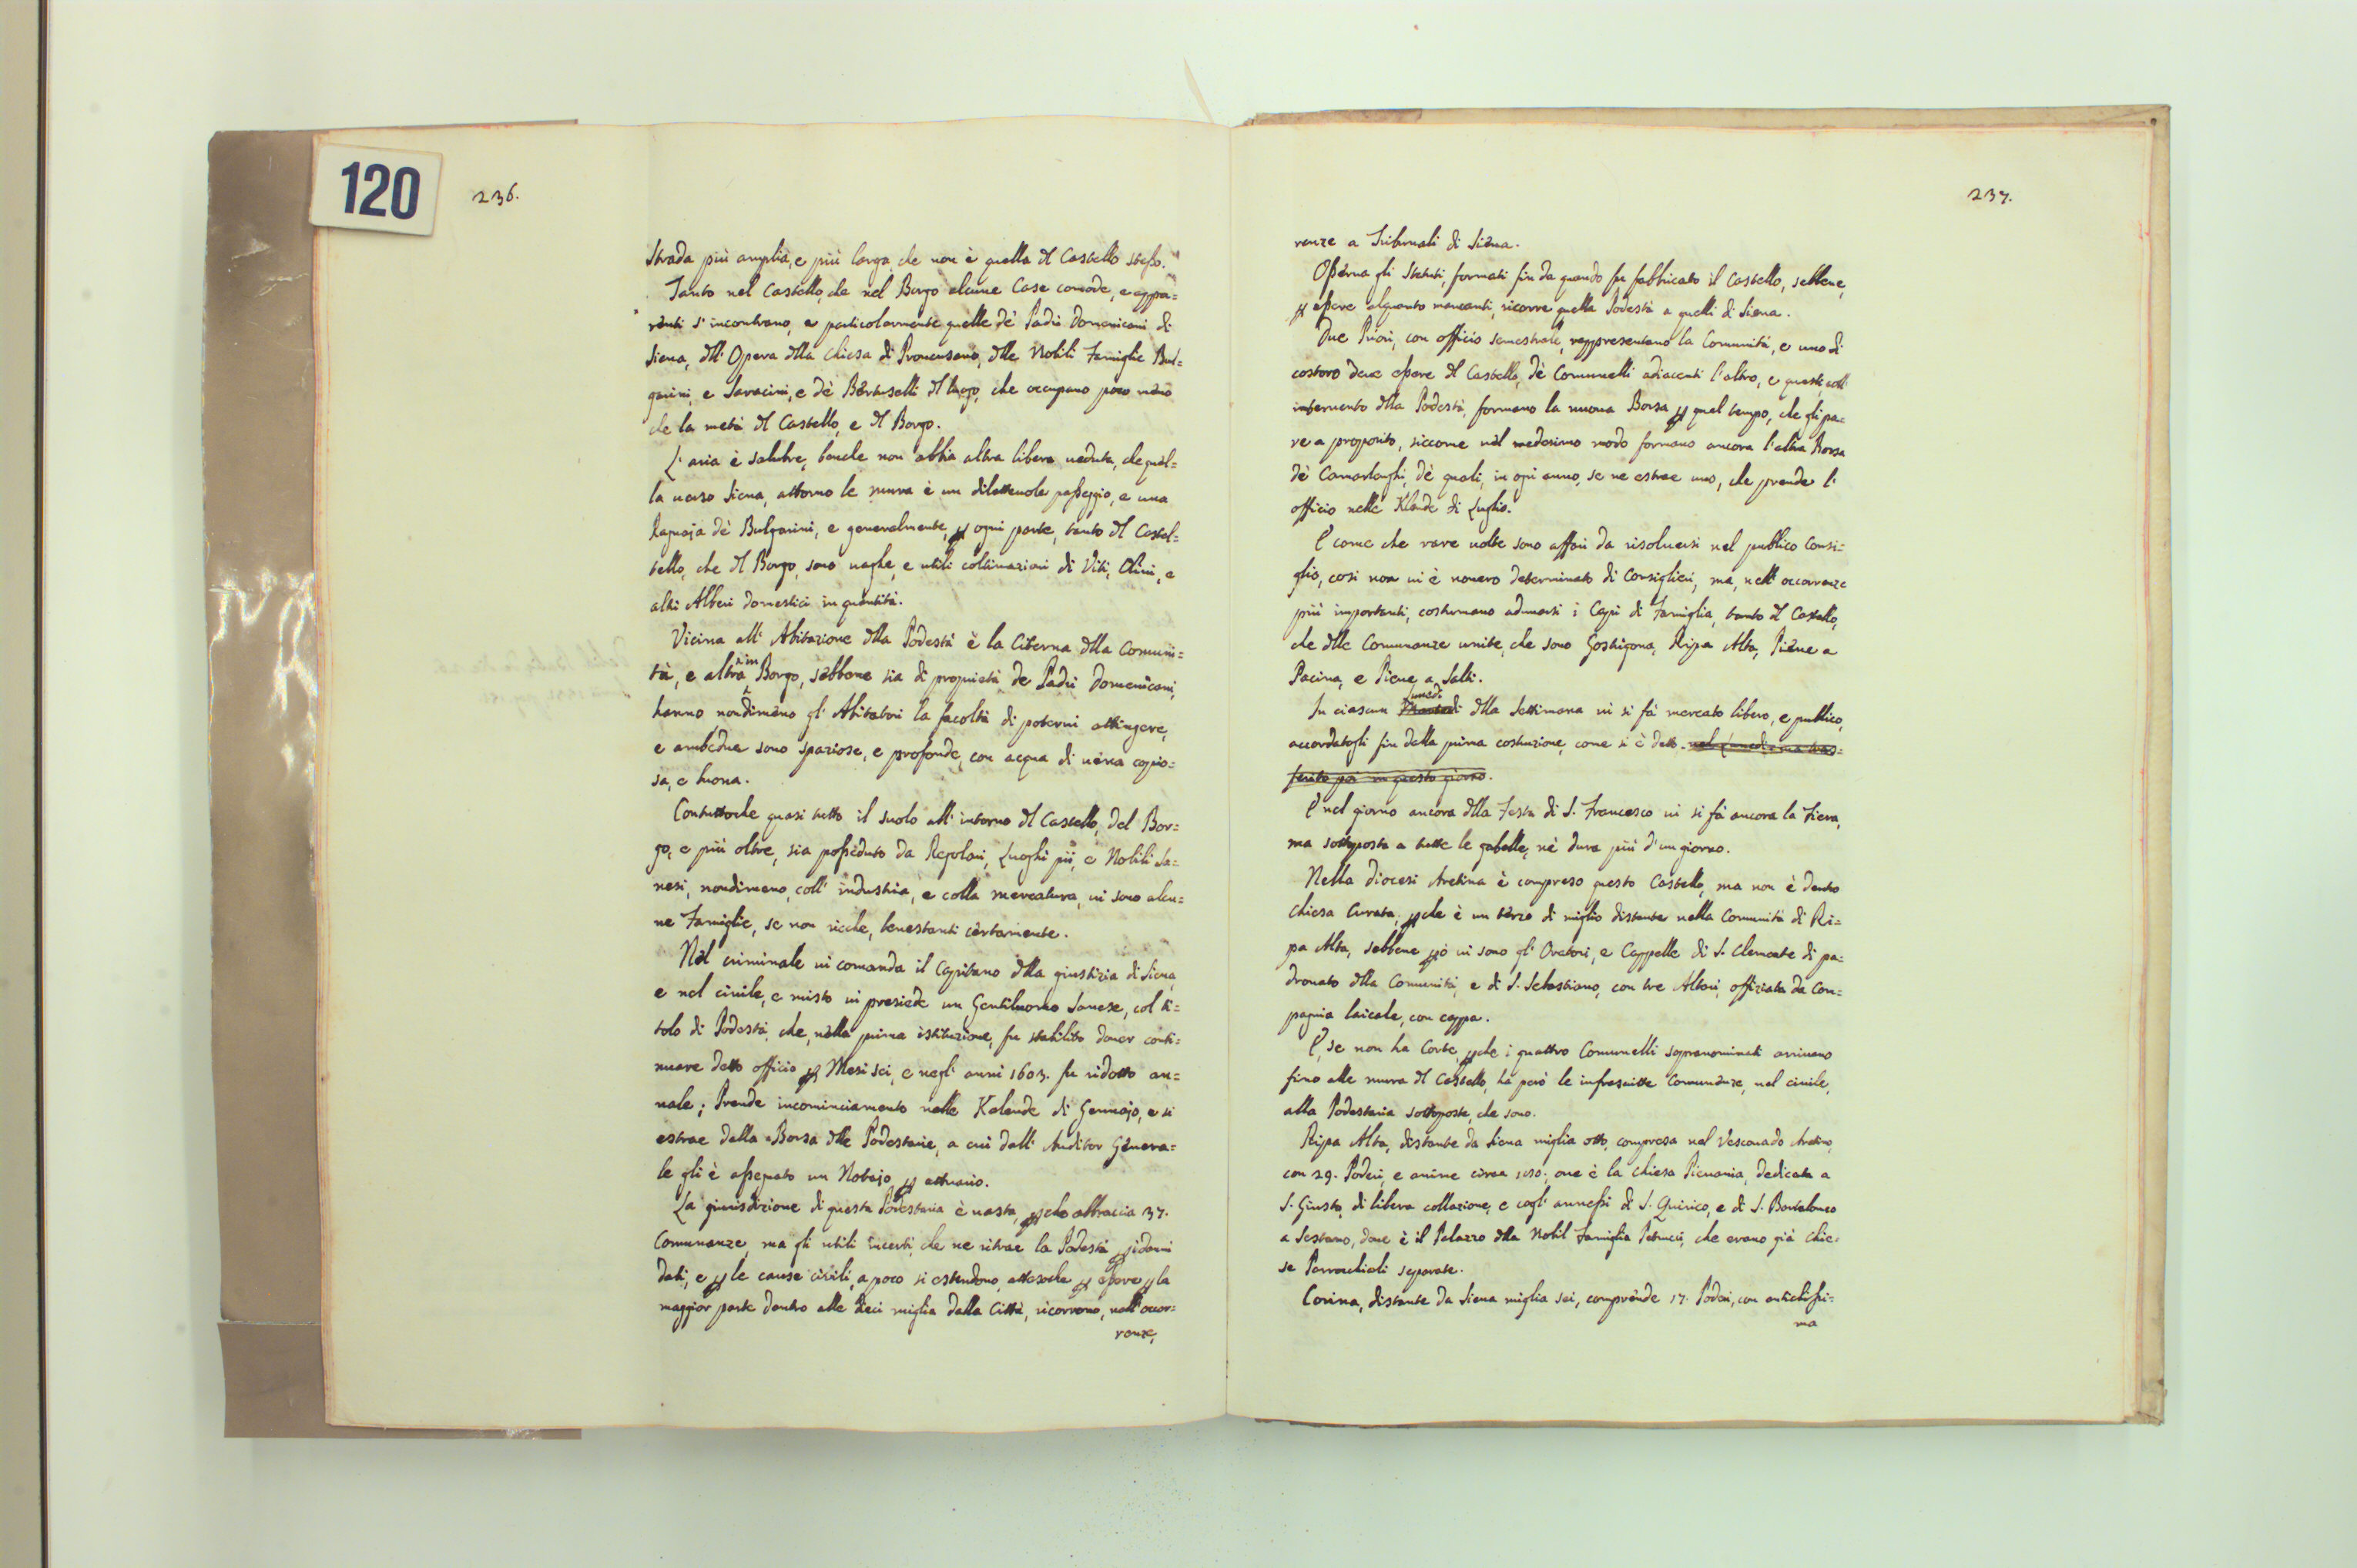 120
236.
strada più amplia, e più larga, che non è quella dl Castello stesso.
Tanto nel Castello, che nel Borgo alcune Case comode, e appa=
renti s'incontrano, e particolarmente quelle dè Padri Domenicani di
Siena, dll'Opera dlla Chiesa di Provenzano, dlle Nobili Famiglie Bul=
garini, e Saracini, e dè Bertuselli dl luogo, che occupano poco meno
che la metà dl Castello, e dl Borgo.
L'aria è salubre, benche non abbia altra libera veduta, che quel=
la verso Siena, attorno le mura è un dilettevole passeggio, e una
Ragnaja dè Bulgarini, e generalmente, p ogni parte, tanto dl Castel=
tello, che dl Borgo, sono vaghe, e utili coltivazioni di Viti, Olivi, e
altri Alberi domestici in quantità.
Vicina all'Abitazione dlla Podestà è la Citerna dlla Comuni=
tà, e altra in Borgo, sebbene sia di proprietà de Padri Domenicani,
hanno nondimeno gl'Abitatori la facoltà di potervi attingere,
e ambedue sono spaziose, e profonde, con acqua di vena copio=
sa, e buona.
Contuttoche quasi tutto il suolo all'intorno dl Castello, del Bor=
go, e più oltre, sia posseduto da Regolari, Luoghi pii, e Nobili Sa=
nesi, nondimeno, coll'industria, e colla mercatura, vi sono alcu=
ne Famiglie, se non ricche, benestanti certamente.
Nel criminale vi comanda il Capitano dlla giustizia di Siena,
e nel civile, e misto vi presiede un Gentiluomo Sanese, col ti=
tolo di Podestà, che, nella prima istituzione, fu stabilito dover conti=
nuare detto officio p Mesi sei, e negl'anni 1603. fu ridotto an=
nale; Prende incominciamento nelle Kalende di Gennajo, e si
estrae dalla Borsa dlle Podestarie, a cui dall'Auditor Genera=
le gli è assegnato un Notajo p attuario.
La giurisdizione di questa Podestaria è vasta, pche abbraccia 37.
Comunanze, ma gli utili incerti, che ne ritrae la Podestà p i danni
dati, e p le cause civili, a poco si estendono, attesoche p essere p la
maggior parte dentro alle dieci miglia dalla Città, ricorrono, nell'occor=
renze,
237.
renze a Tribunali di Siena.
Osserva gli Statuti, formati fin da quando fu fabbricato il Castello, sebbene,
p essere alquanto mancanti, ricorre quella Podestà a quelli di Siena.
Due Priori, con officio semestrale, rappresentano la Comunità, e uno di
costoro deve essere dl Castello, dè Comunelli adiacenti l'altro, e questi, coll'
intervento dlla Podestà, formano la nuova Borsa p quel tempo, che gli pa=
re a proposito, siccome nel medesimo modo formano ancora l'altra Borsa
dè Camarlenghi, dè quali, in ogni anno, se ne estrae uno, che prende l'
officio nelle Klende di Luglio.
E come che rare volte sono affari da risolversi nel pubblico Consi=
glio, così non vi è novero determinato di Consiglieri, ma, nell'occorrenze
più importanti, costumano adunarsi i Capi di Famiglia, tanto dl Castello,
che dlle Comunanze unite, che sono Gostigona, Ripa Alta, Pieve a
Pacina, e Pieve a Salti.
Lunedì
In ciascun Martedi dlla Settimana vi si fà mercato libero, e publico,
accordatogli fin dalla prima costruzione, come si è detto. nel Lunedi, ma tras=
ferito poi in questo giorno.
E nel giorno ancora dlla Festa di S. Francesco vi si fà ancora la Fiera,
ma sottoposta a tutte le gabelle, nè dura più d'un giorno.
Nella Diocesi Aretina è compreso questo Castello, ma non è dentro
Chiesa Curata, pche è un terzo di miglio distante nella Comunità di Ri=
pa Alta, sebbene pò vi sono gl'Oratori, e Cappelle di S. Clemente di pa=
dronato dlla Comunità, e di S. Sebastiano, con tre Altari, offiziata da Con=
pagnia laicale, con cappa.
E, se non ha Corte, pche i quattro Comunelli sopranominati arrivano
fino alle mura dl Castello, hà però le infrascritte Comunanze, nel civile,
alla Podestaria sottoposte, che sono.
Ripa Alta, distante da Siena miglia otto, compresa nel Vescovado Aretino,
con 29. Poderi, e anime circa 250., ove è la Chiesa Pievania, dedicata a
S. Giusto, di libera collazione, e cogl'annessi di S. Quirico, e di S. Bartolomeo
a Sestano, dove è il Palazzo dlla Nobil Famiglia Petrucci, che erano già Chie=
se Parrochiali separate.
Cosina, distante da Siena miglia sei, comprende 17. Poderi, con antichissi=
ma